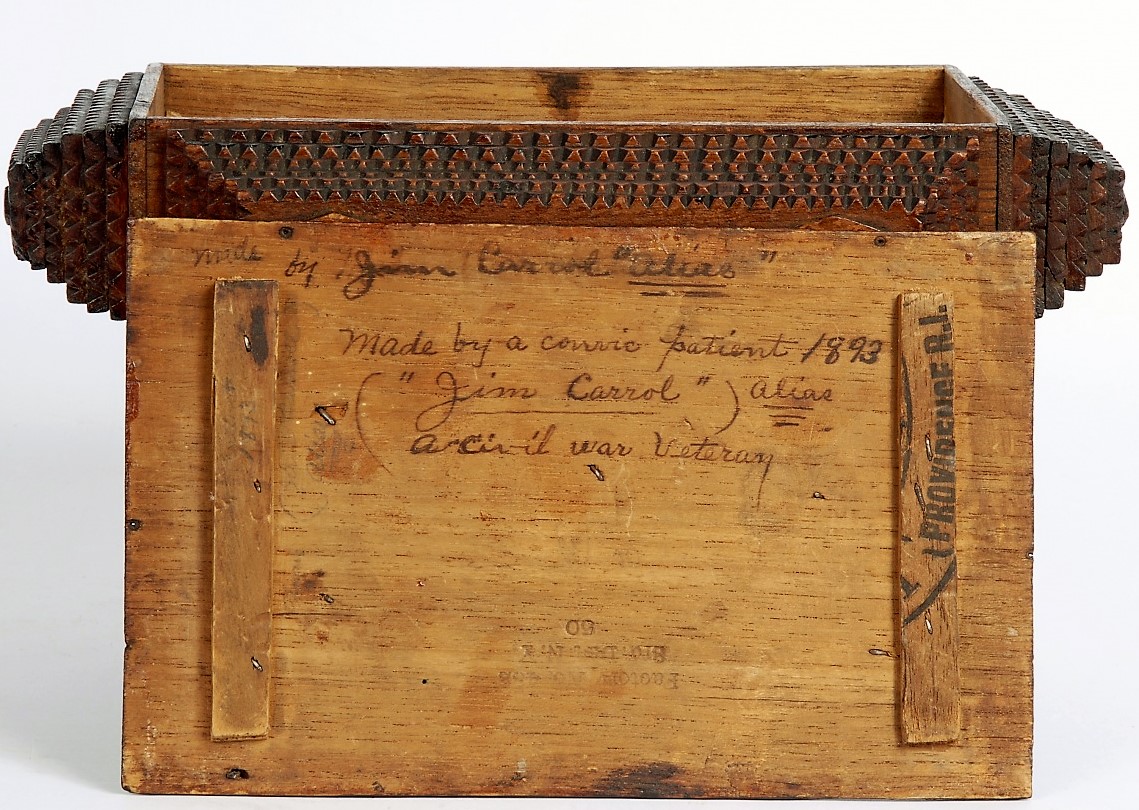 made by Jim Carrol "alias"
Made by a convic patient 1893
(" Jim Carrol ") alias
a civil war Veteran
PROVIDENCE R.I.
50